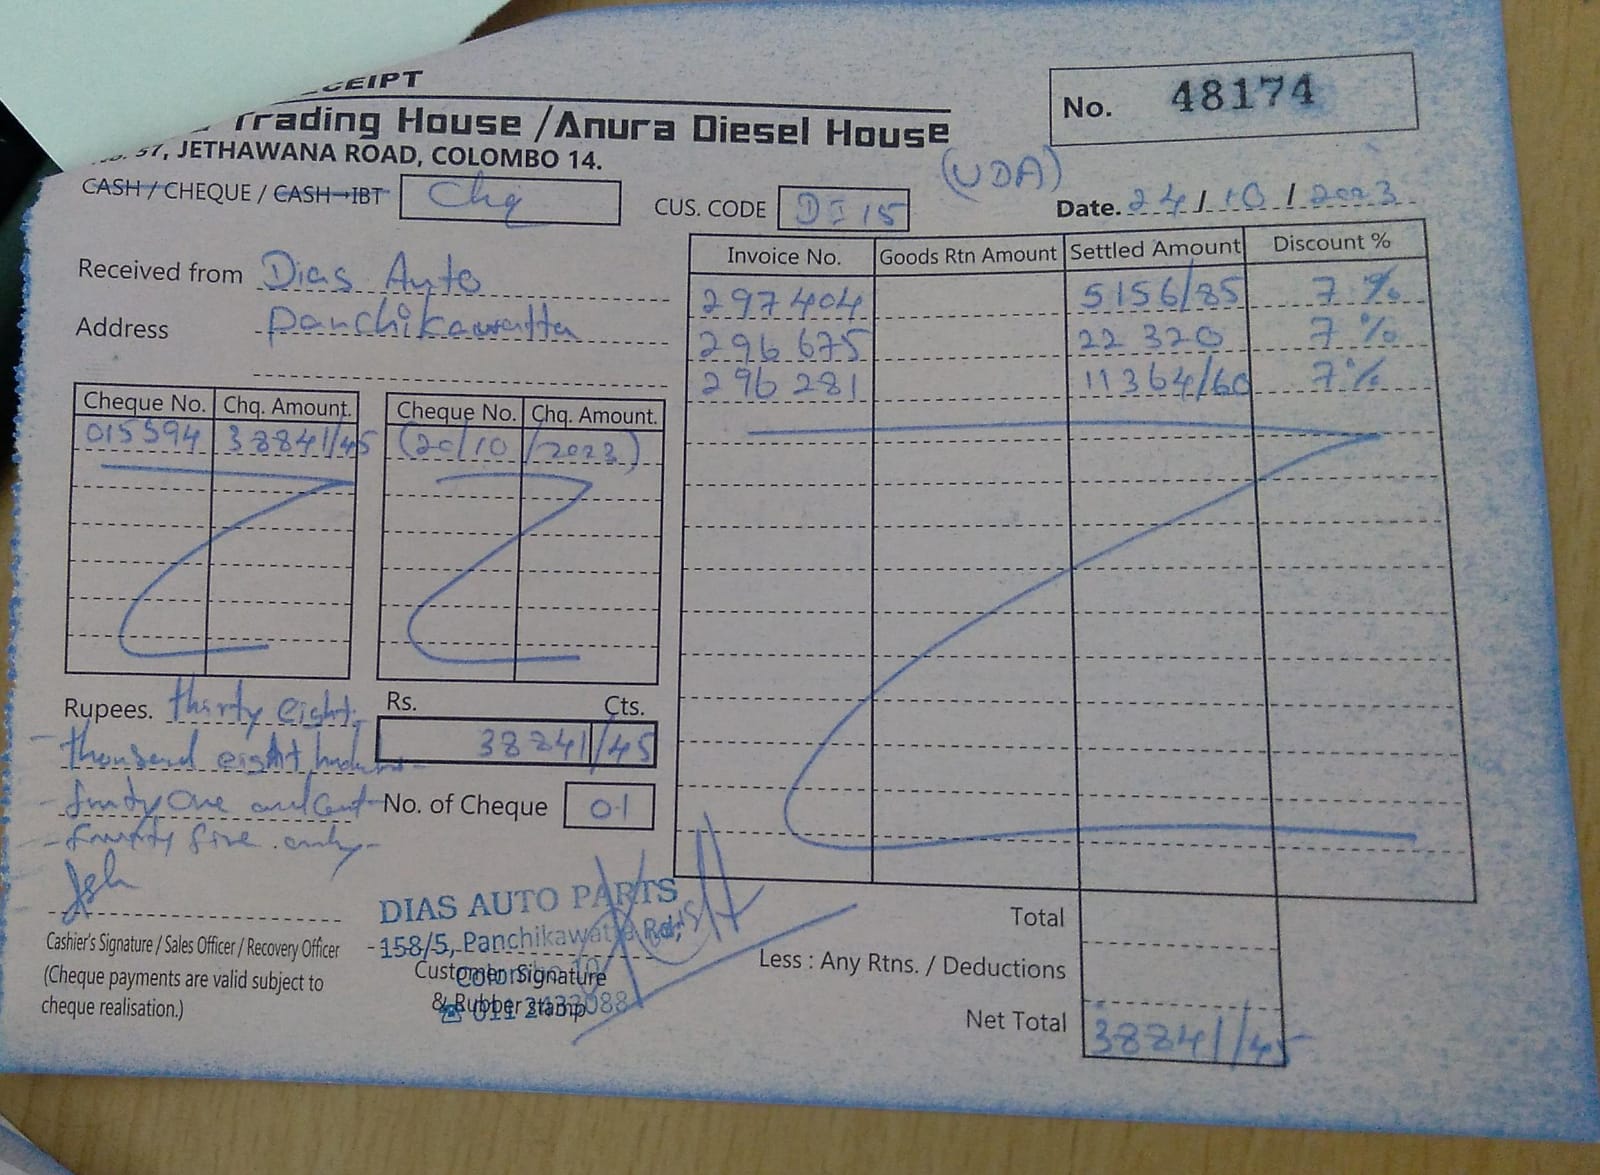 No. 48174
Trading House /Anura Diesel House
JETHAWANA ROAD, COLOMBO 14.
(UDA)
CASH / CHEQUE / CASH-IBT Chq
CUS. CODE DI 15
Date. 24 / 10 / 2023
Received from Dias Auto
Address Panchikawatta
Invoice No. Goods Rtn Amount Settled Amount Discount %
297404 5156/85 7 %
296 675 22 320 7 %
296 281 11364/60 7 %
Cheque No. Chq. Amount. Cheque No. Chq. Amount.
015594 38841/45 (20/10/2023)
Rupees. thirty eight
thousand eight hundred
fourty One and Cent
fourty five only
Rs. Cts.
38841/45
No. of Cheque 01
Cashier's Signature / Sales Officer / Recovery Officer
(Cheque payments are valid subject to
cheque realisation.)
DIAS AUTO PARTS
158/5, Panchikawatta Rd,
Colombo 10
Customer Signature
& Rubber stamp
Total
Less : Any Rtns. / Deductions
Net Total 38841/45